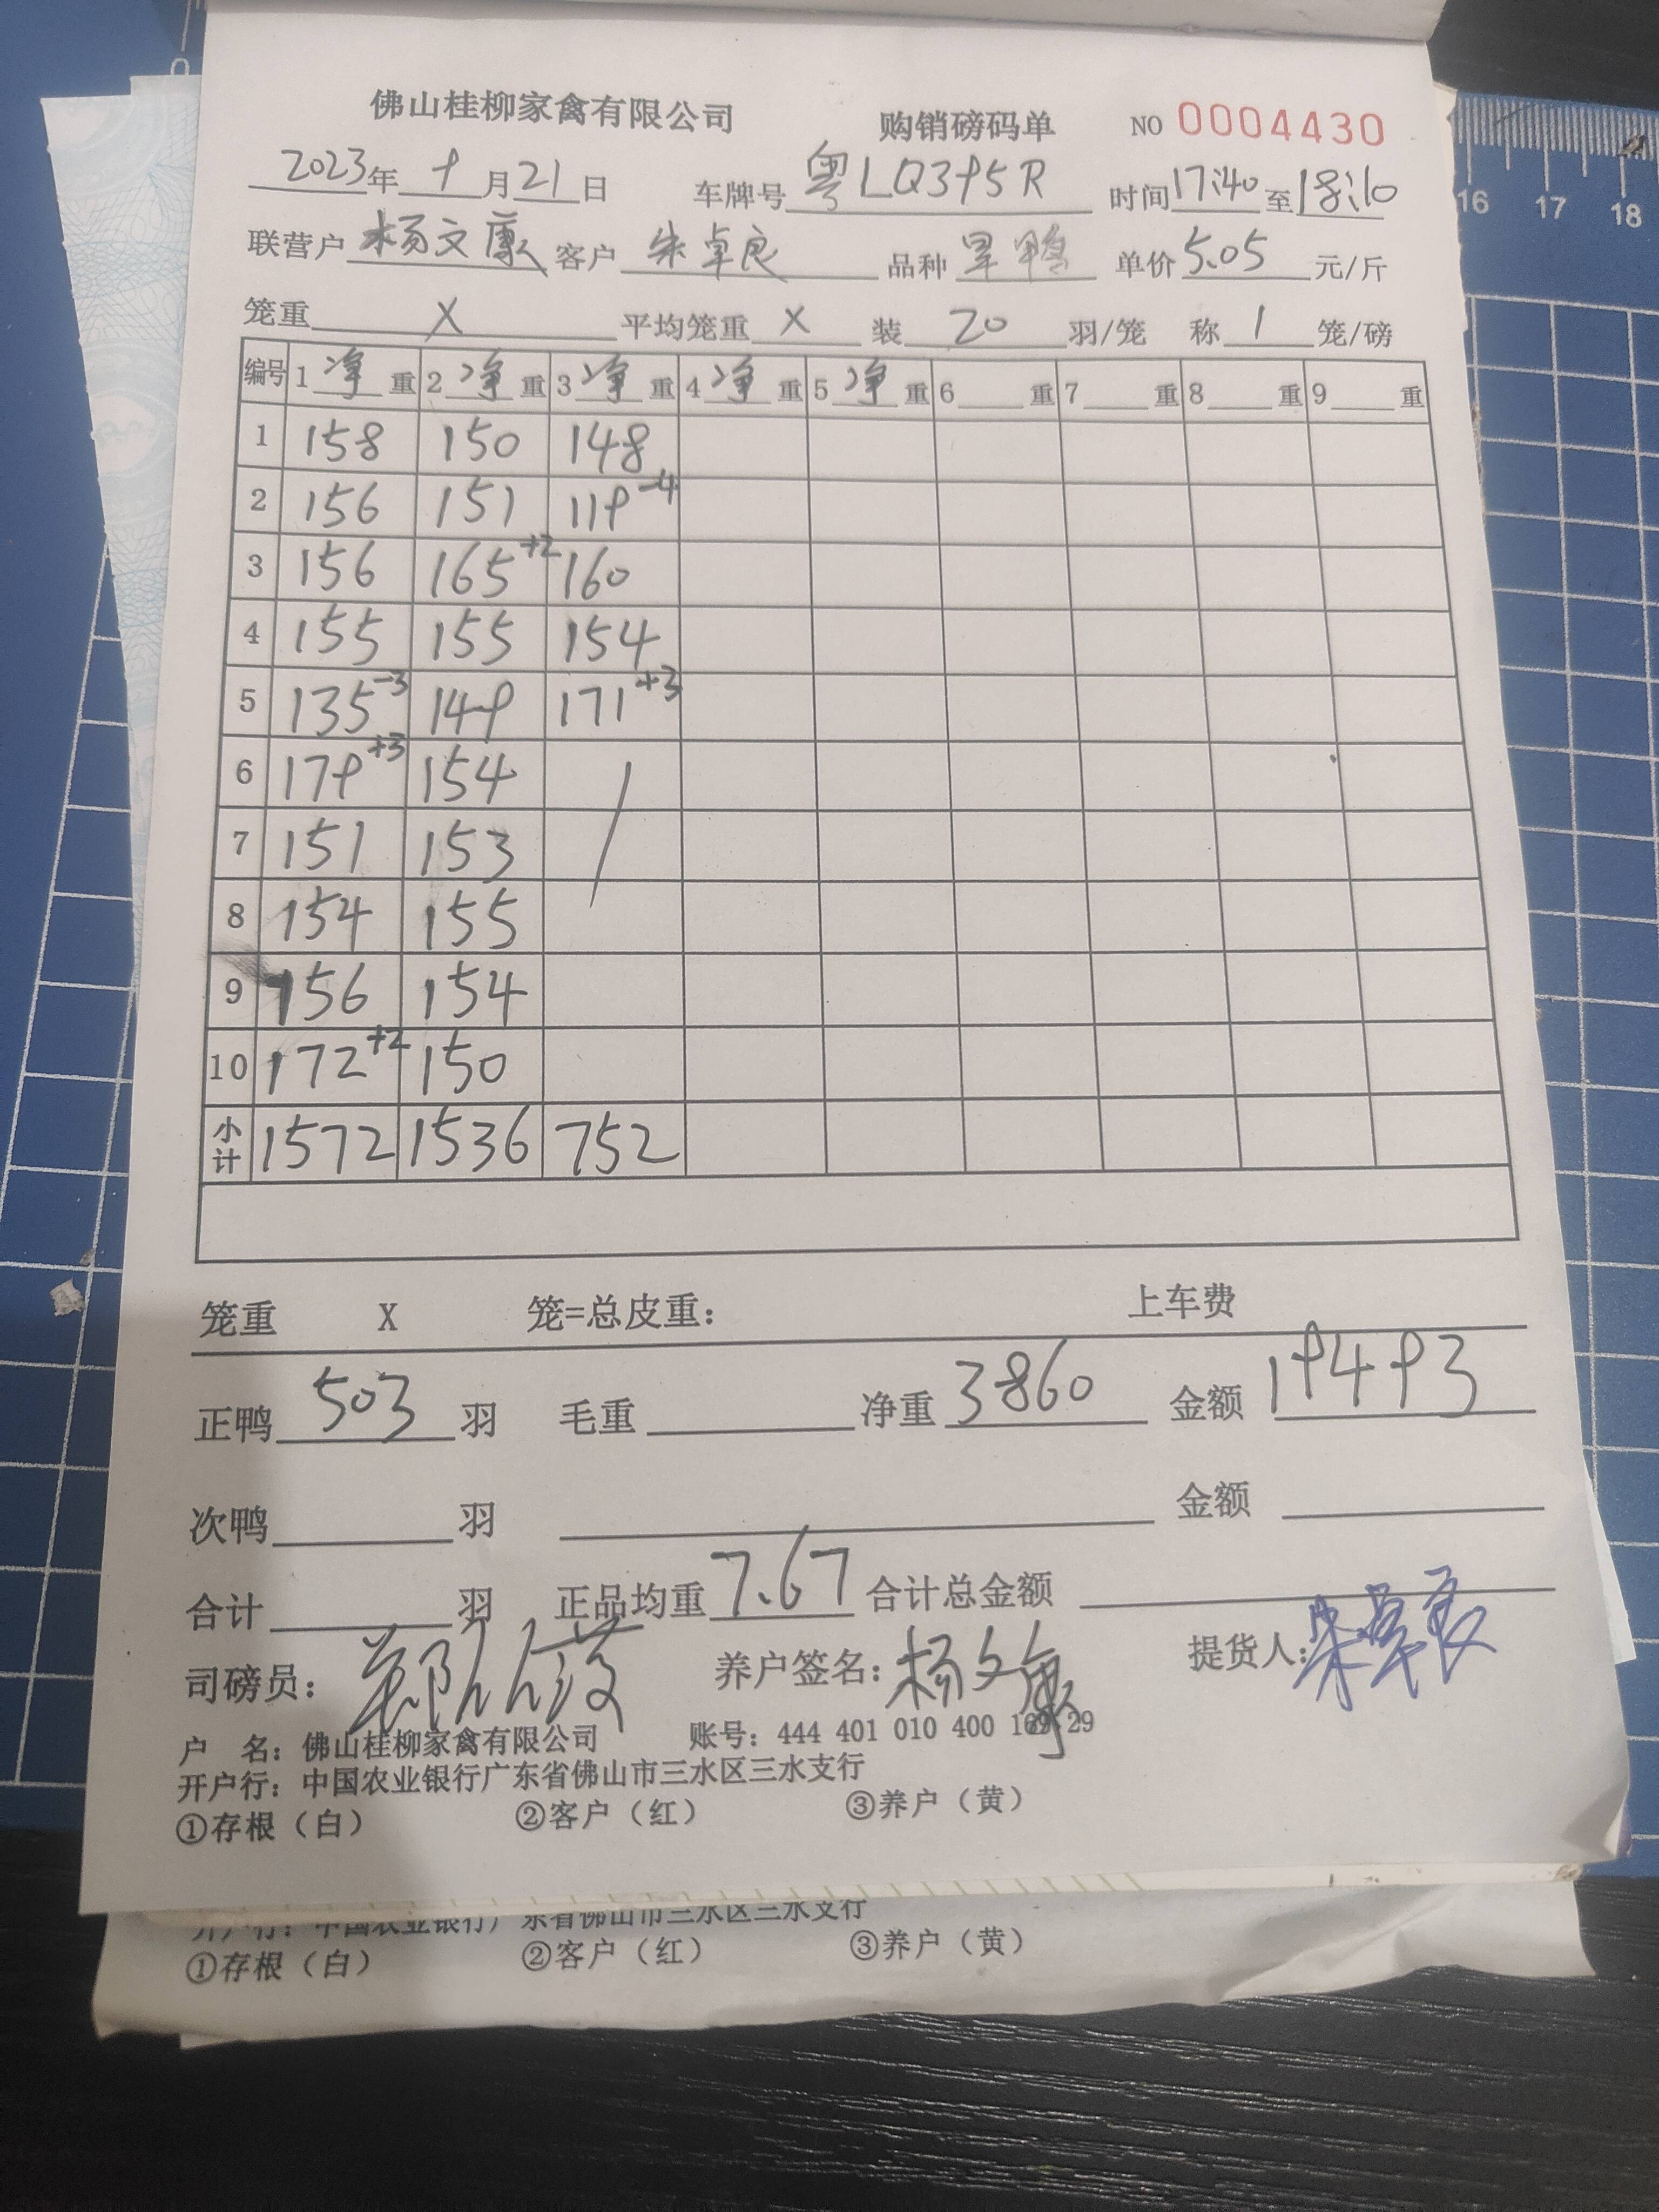 佛山桂柳家禽有限公司 购销磅码单 NO 0004430
2023年 9 月 21 日 车牌号 粤LQ395R 时间 17:40 至 18:10
联营户 杨文康 客户 朱卓良 品种 旱鸭 单价 5.05 元/斤
笼重 X 平均笼重 X 装 20 羽/笼 称 1 笼/磅
编号 1 净 重 2 净 重 3 净 重 4 净 重 5 净 重 6 重 7 重 8 重 9 重
1 158 150 148
2 156 151 119-4
3 156 165+2 160
4 155 155 154
5 135-3 149 171+3
6 179+3 154
7 151 153
8 154 155
9 156 154
10 172+2 150
小计 1572 1536 752
笼重 X 笼=总皮重: 上车费
正鸭 503 羽 毛重 净重 3860 金额 19493
次鸭 羽 金额
合计 羽 正品均重 7.67 合计总金额
司磅员: 养户签名: 杨文康 提货人: 朱卓良
户 名: 佛山桂柳家禽有限公司 账号: 444 401 010 400 169 29
开户行: 中国农业银行广东省佛山市三水区三水支行
①存根(白) ②客户(红) ③养户(黄)
开户行: 中国农业银行广东省佛山市三水区三水支行
①存根(白) ②客户(红) ③养户(黄)
16 17 18
0